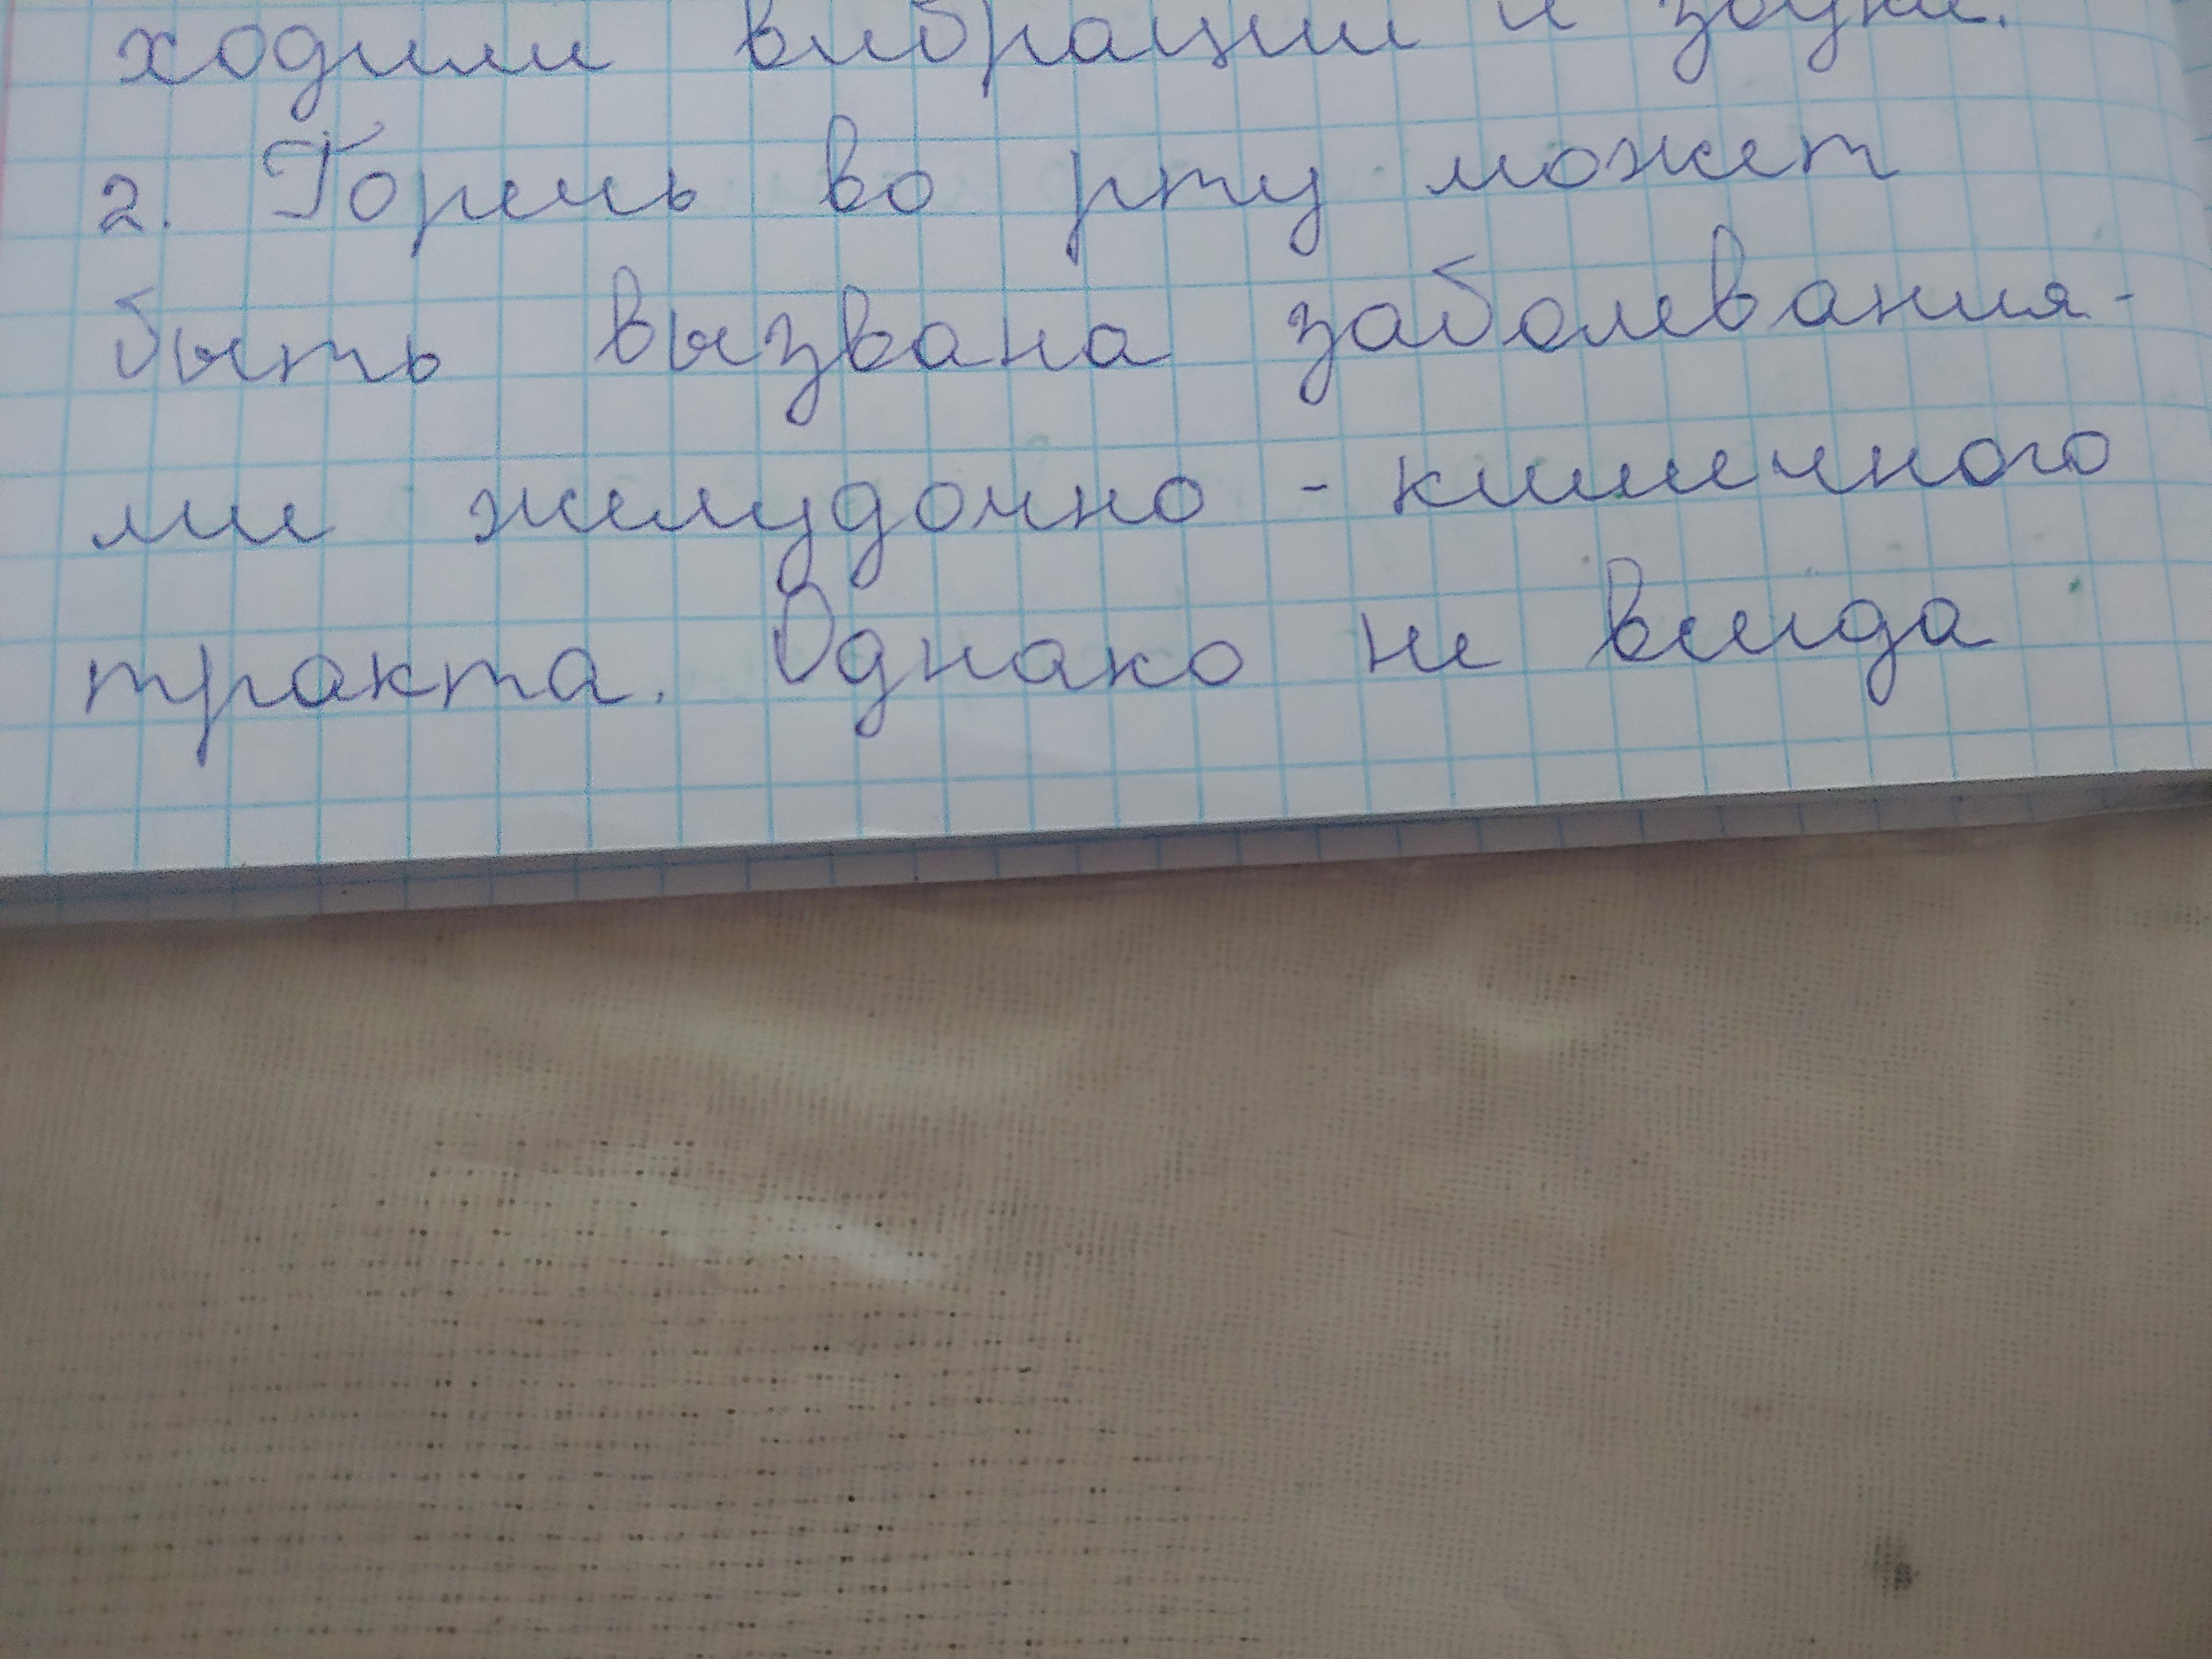 ходили вибрации и звуки.
2. Горечь во рту может
быть вызвана заболевания-
ми желудочно - кишечного
тракта. Однако не всегда